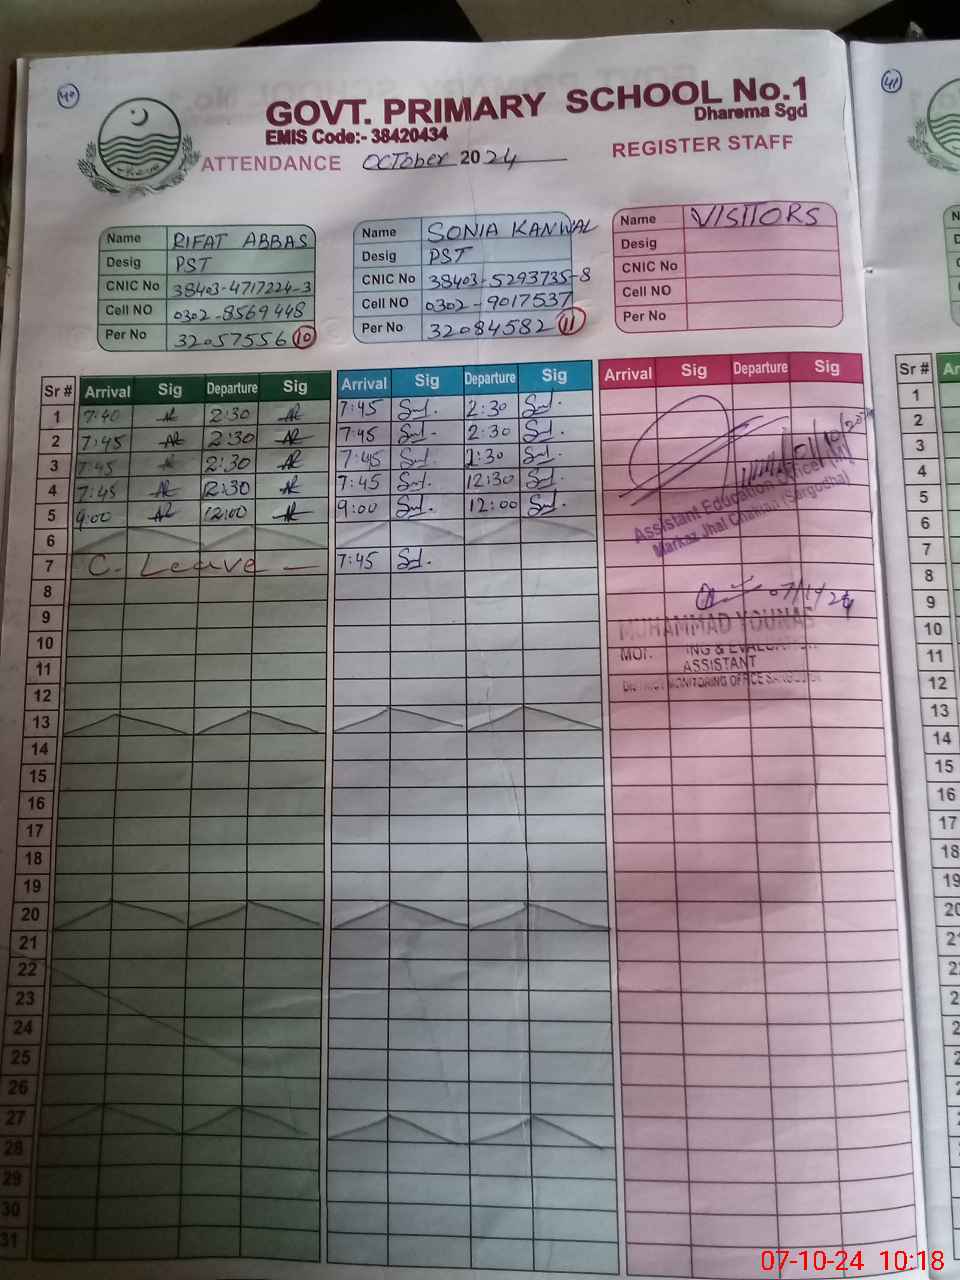 40
41
GOVT. PRIMARY SCHOOL No.1
Dharema Sgd
EMIS Code:- 38420434
ATTENDANCE OCTober 2024 REGISTER STAFF
Name RIFAT ABBAS
Desig PST
CNIC No 38403-4717224-3
Cell NO 0302-8569448
Per No 32057556 10
Name SONIA KANWAL
Desig PST
CNIC No 38403-5293735-8
Cell NO 0302-9017537
Per No 32084582 11
Name VISITORS
Desig
CNIC No
Cell NO
Per No
Sr # Arrival Sig Departure Sig Arrival Sig Departure Sig Arrival Sig Departure Sig Sr #
1 7:40 2:30 7:45 2:30 1
2 7:45 2:30 7:45 2:30 2
3 7:45 2:30 7:45 2:30 3
4 7:45 12:30 7:45 12:30 4
5 9:00 12:00 9:00 12:00 5
6 6
7 C. Leave 7:45 7
8 8
9 9
10 10
11 11
12 12
13 13
14 14
15 15
16 16
17 17
18 18
19 19
20 20
21
22
23
24
25
26
27
28
29
30
31
Assistant Education Officer (M)
Markaz Jhal Chakian (Sargodha)
MUHAMMAD YOUNAS
ING & EVALUATION
ASSISTANT
DISTRICT MONITORING OFFICE SARGODHA
07-10-24 10:18